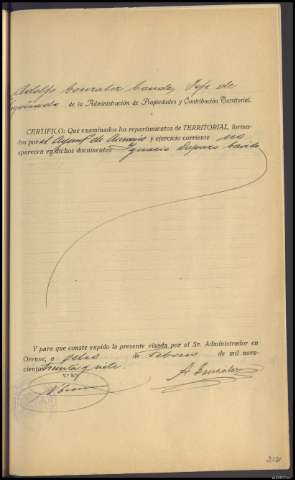 Adolfo Gonzalez Conde, Jefe de
Negociado de la Administración de Propiedades y Contribución Territorial.
CERTIFICO: Que examinados los repartimientos de TERRITORIAL, forma-
dos por el Ayunt.º de y ejercicio corriente no
aparece en dichos documentos Ignacio
Y para que conste expido la presente visada por el Sr. Administrador en
Orense, a de Febrero de mil nove-
cientos treinta y siete.
A. Gonzalez